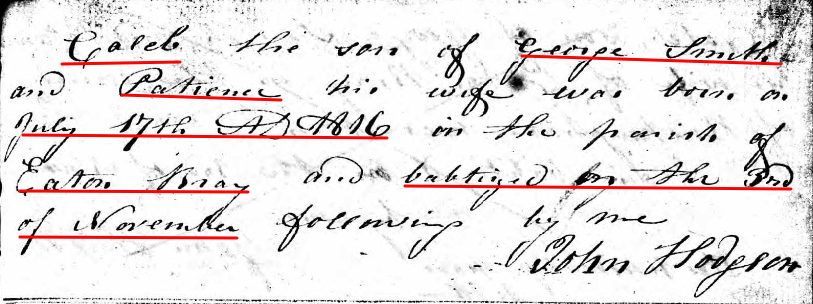 Caleb the son of George Smith
and Patience his wife was born on
July 17th AD 1816 in the parish of
Eaton Bray and babtized on the 3rd
of November following by me
John Hodgson